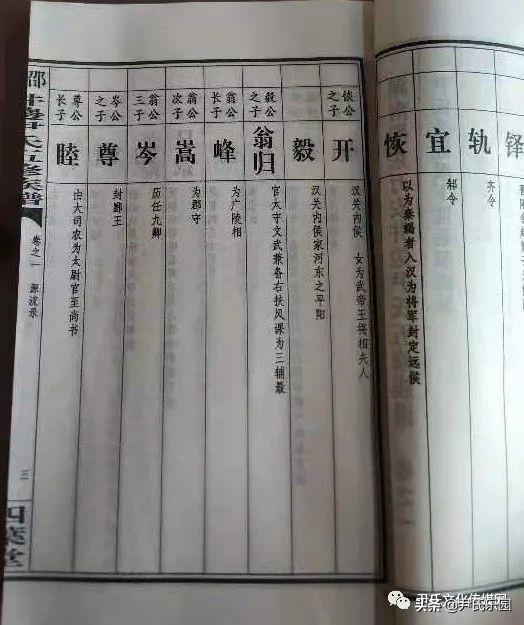 铎
轨
齐令
宜
郝令
恢
以为秦谒者入汉为将军封定远侯
恢公之子
开
汉关内侯 女为武帝王将相夫人
毅
汉关内侯家河东之平阳
毅公之子
翁归
官太守文武兼备右扶风课为三辅最
翁公长子
峰
为广陵相
翁公次子
嵩
为郡守
翁公三子
岑
历任九卿
岑公之子
尊
封鄞王
尊公长子
睦
由大司农为太尉官至尚书
氏五修族谱
卷之一 源流录
三
四叶堂
尹氏文化传媒网
头条@尹氏乐园